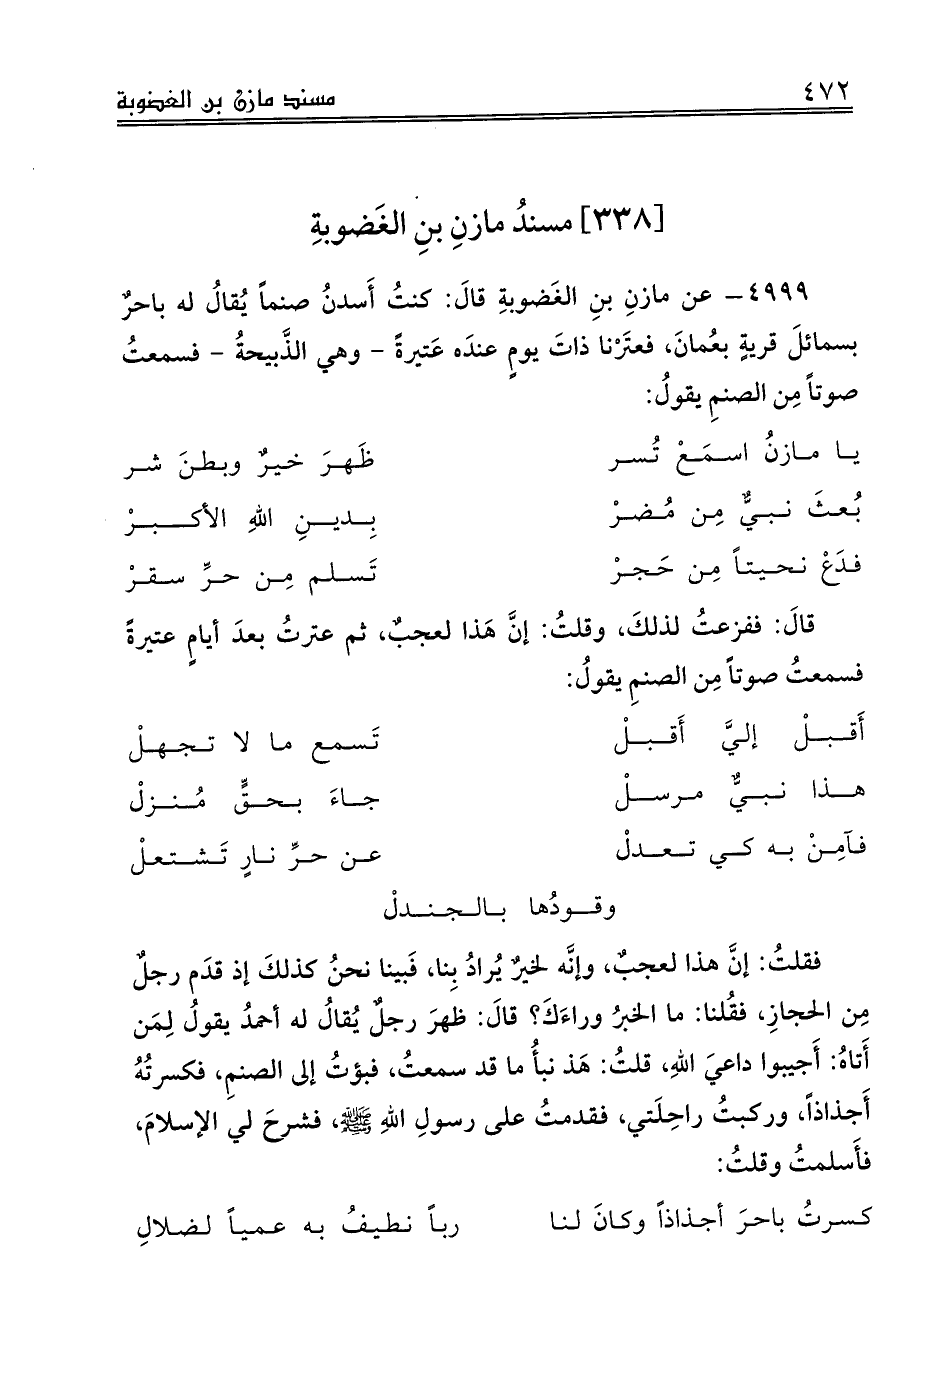 ٤٧٢ مسند مازن بن الغضوبة
[٣٣٨] مسندُ مازنِ بنِ الغَضوبةِ
٤٩٩٩- عن مازنِ بنِ الغَضوبةِ قالَ: كنتُ أَسدنُ صنماً يُقالُ له باحرٌ
بسمائلَ قريةٍ بعُمانَ، فعتَرْنا ذاتَ يومٍ عندَه عَتيرةً - وهي الذَّبيحةُ - فسمعتُ
صوتاً مِن الصنمِ يقولُ:
يا مازنُ اسمَعْ تُسر ظَهرَ خيرٌ وبطنَ شر
بُعثَ نبيٌّ مِن مُضرْ بِدينِ اللهِ الأكبرْ
فدَعْ نحيتاً مِن حَجرْ تَسلم مِن حرِّ سقرْ
قالَ: ففزعتُ لذلكَ، وقلتُ: إنَّ هَذا لعجبٌ، ثم عترتُ بعدَ أيامٍ عتيرةً
فسمعتُ صوتاً مِن الصنمِ يقولُ:
أَقبلْ إليَّ أَقبلْ تَسمع ما لا تجهلْ
هذا نبيٌّ مرسلْ جاءَ بحقٍّ مُنزلْ
فآمِنْ به كي تعدلْ عن حرِّ نارٍ تَشتعلْ
وقودُها بالجندلْ
فقلتُ: إنَّ هذا لعجبٌ، وإنَّه لخيرٌ يُرادُ بِنا، فَبينا نحنُ كذلكَ إذ قدَم رجلٌ
مِن الحجازِ، فقُلنا: ما الخبرُ وراءَكَ؟ قالَ: ظهرَ رجلٌ يُقالُ له أحمدُ يقولُ لِمَن
أَتاهُ: أَجيبوا داعيَ اللهِ، قلتُ: هَذ نبأُ ما قد سمعتُ، فبؤتُ إلى الصنمِ، فكسرتُهُ
أَجذاذاً، وركبتُ راحِلَتي، فقدمتُ على رسولِ اللهِ ﷺ، فشرحَ لي الإسلامَ،
فأَسلمتُ وقلتُ:
كسرتُ باحرَ أجذاذاً وكانَ لنا رباً نطيفُ به عمياً لضلالِ